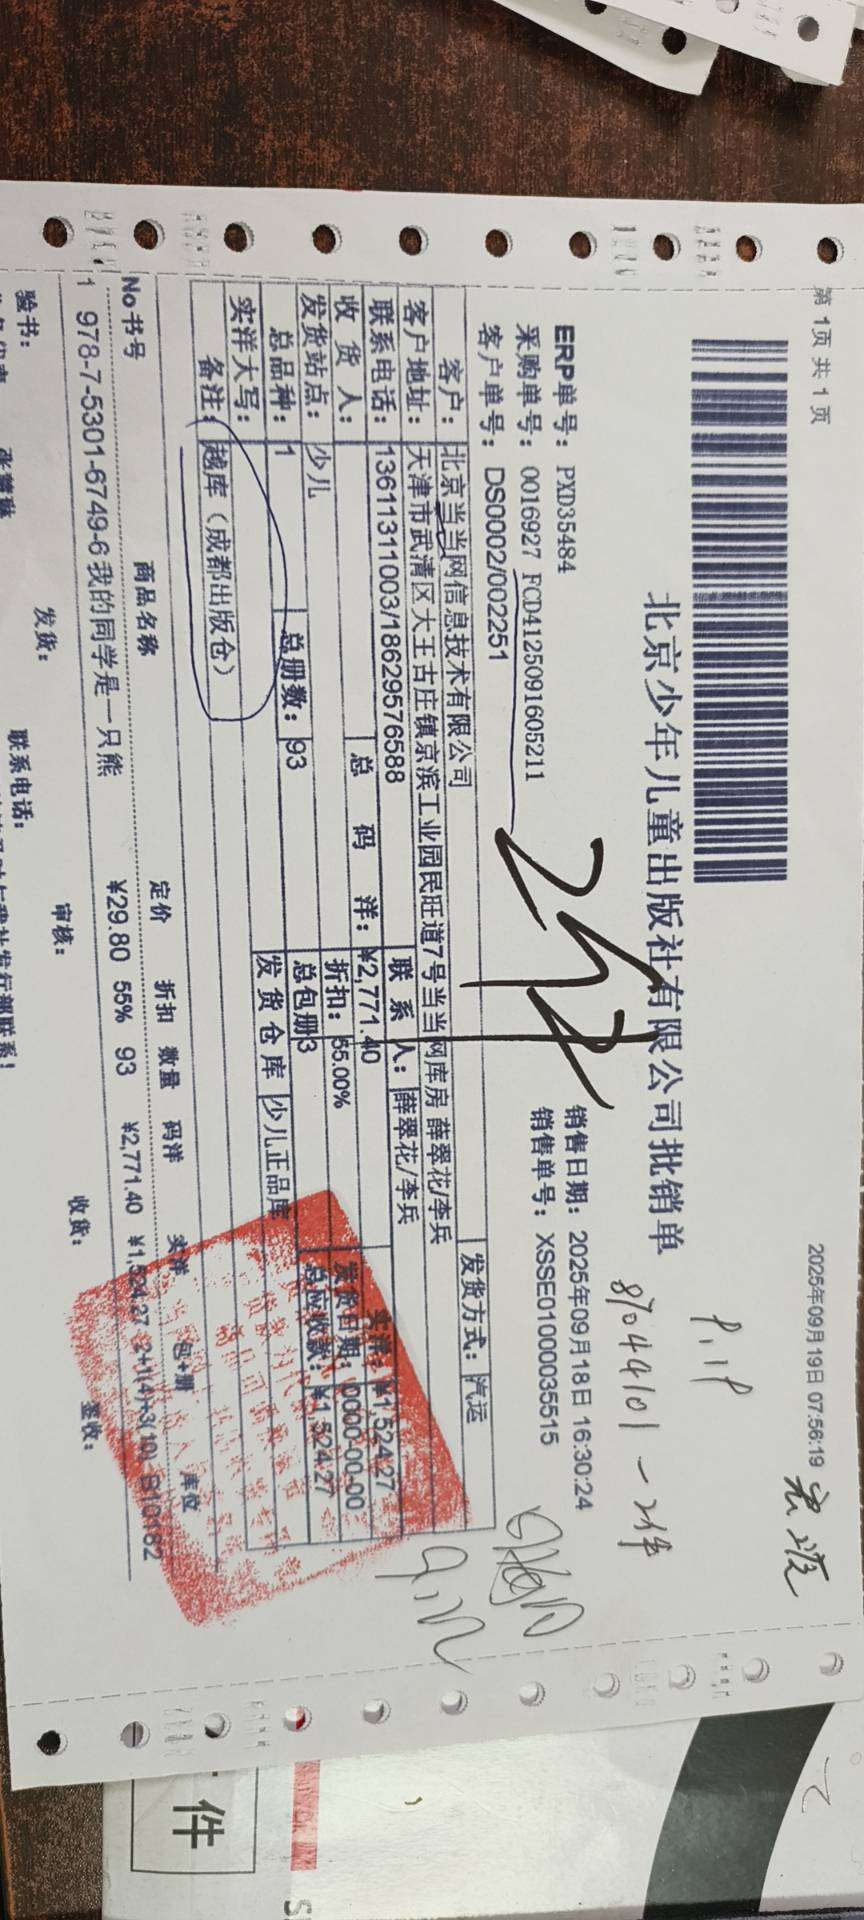 第 1页 共 1 页
2025年09月19日 07:56:19
北京少年儿童出版社有限公司批销单
ERP单号： PXD35484
销售日期： 2025年09月18日 16:30:24
采购单号： 0016927 FCD4125091605211
销售单号： XSSE01000035515
客户单号： DS0002/002251
87044101 一 2件
2件
客户： 北京当当网信息技术有限公司 发货方式： 汽运
客户地址： 天津市武清区大王古庄镇京滨工业园民旺道7号当当网库房 薛翠花/李兵
联系电话： 13611311003/18629576588 联 系 人： 薛翠花/李兵
收 货 人： 总 码 洋： ¥2,771.40 实洋： ¥1,524.27
发货站点： 少儿 折扣： 55.00% 发货日期： 0000-00-00
总品种： 1 总册数： 93 总包册3 总应收款： ¥1,524.27
实洋大写： 发 货 仓 库 少儿正品库
备注： 越库（成都出版仓）
No书号 商品名称 定价 折扣 数量 码洋 实洋 包+册 库位
1 978-7-5301-6749-6 我的同学是一只熊 ¥29.80 55% 93 ¥2,771.40 ¥1,524.27 2+1(4)+3(10) B10182
验书： 发货： 审核： 收货： 签收：
联系电话：
件